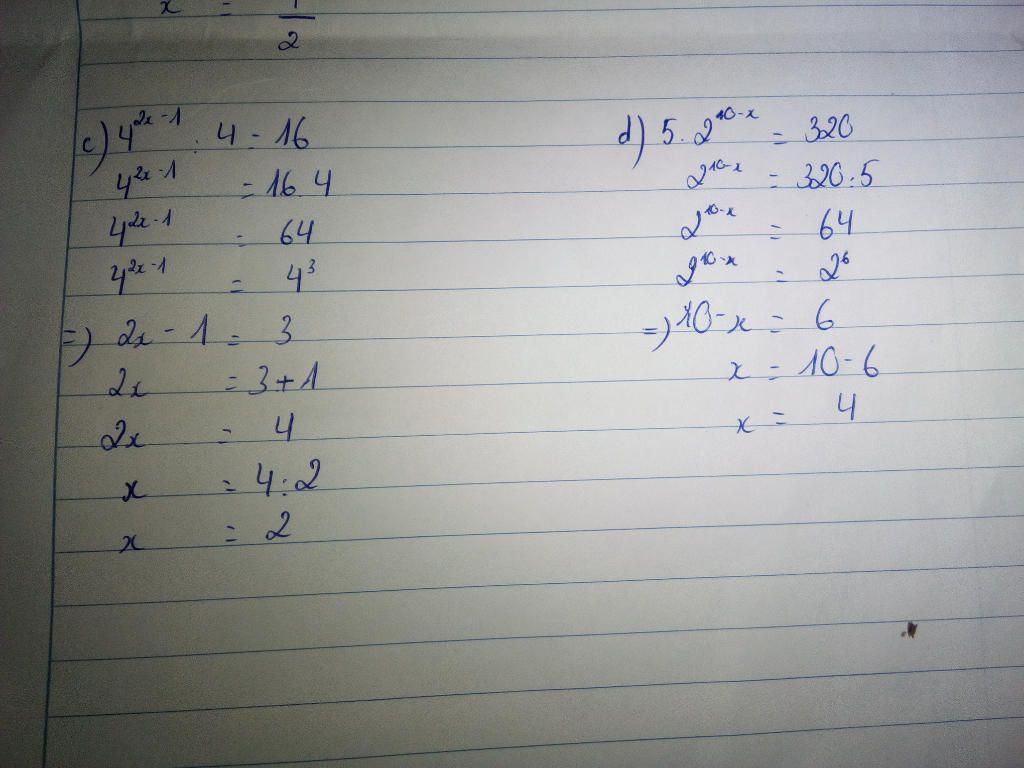 x = 1/2
c) 4^{2x-1} : 4 = 16
4^{2x-1} = 16.4
4^{2x-1} = 64
4^{2x-1} = 4^3
=) 2x - 1 = 3
2x = 3+1
2x = 4
x = 4:2
x = 2
d) 5.2^{10-x} = 320
2^{10-x} = 320:5
2^{10-x} = 64
2^{10-x} = 2^6
=) 10-x = 6
x = 10-6
x = 4